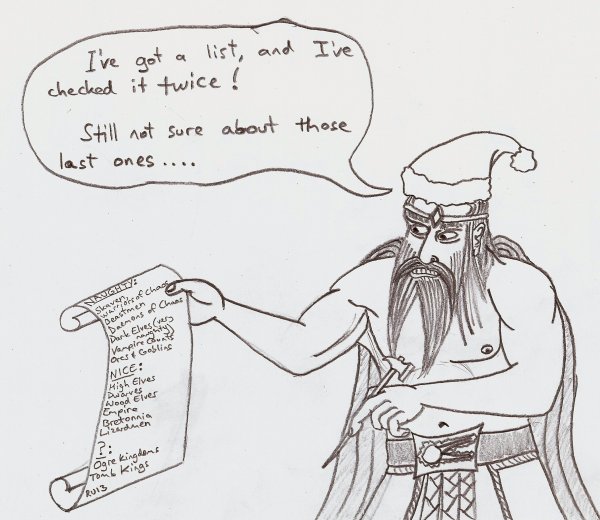 I've got a list, and I've
checked it twice!
Still not sure about those
last ones....
NAUGHTY:
Skaven
Warriors of Chaos
Beastmen
Daemons of Chaos
Dark Elves (very
naughty)
Vampire Counts
Orcs & Goblins
NICE:
High Elves
Dwarves
Wood Elves
Empire
Bretonnia
Lizardmen
?:
Ogre Kingdoms
Tomb Kings